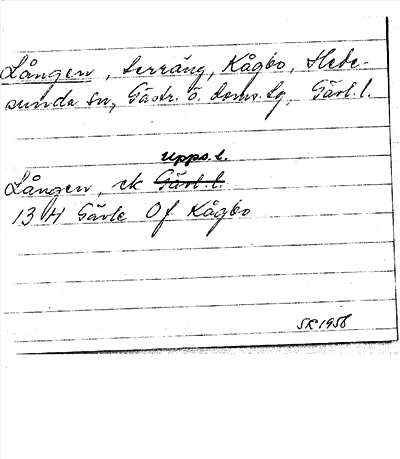 Lången, terräng, Kågbo, Hede-
sunda sn, Gästr. ö. doms. lg, Gävl. l.
Upps. l.
Lången, ek Gävl. l.
13 H Gävle Of Kågbo
SK 1958